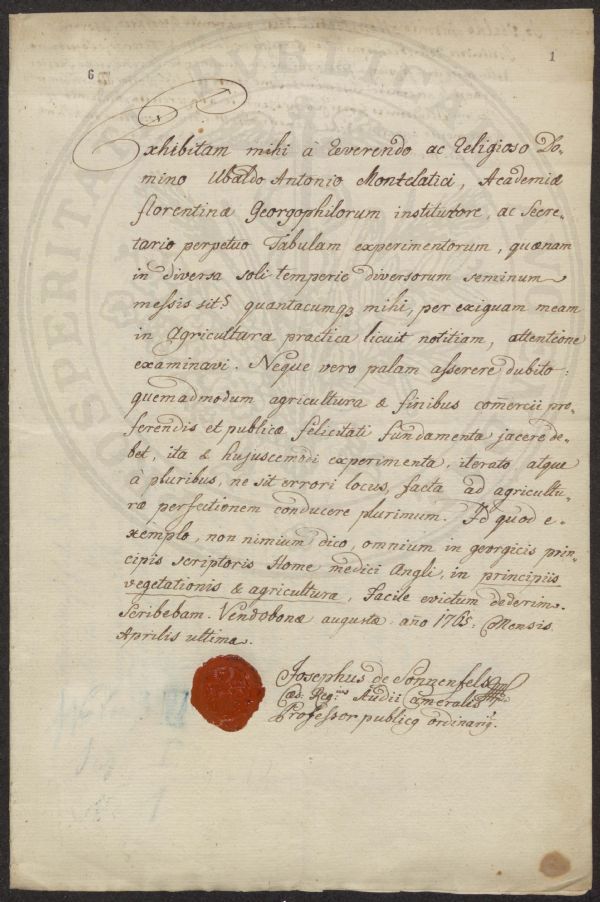 6
1
Exhibitam mihi à Reverendo ac Religioso Do-
mino Ubaldo Antonio Montelatici, Academiæ
florentinæ Georgophilorum institutore, ac Secre-
tario perpetuo Tabulam experimentorum, quænam
in diversa soli temperie diversorum seminum
messis sit: quantacumq3 mihi, per exiguam meam
in Agricultura practica licuit notitiam, attentione
examinavi. Neque vero palam asserere dubito:
quemadmodum agricultura & finibus com̄ercii pro-
ferendis et publicæ felicitati fundamenta jacere de-
bet, ita & hujuscemodi experimenta, iterato, atque
à pluribus, ne sit errori locus, facta ad agricultu-
ræ perfectionem conducere plurimum. Id quod e-
xemplo, non nimium dico, omnium in georgicis prin-
cipis scriptoris Home medici Angli, in principiis
vegetationis & agricultura, facile evictum dederim.
Scribebam. Vendobonæ augustæ año 1765: Mensis
Aprilis ultima.
Josephus de Sonnenfels
Cæs: Reg: Studii Cameralis
Professor publicq ordinariq.
PUBLICA
PROSPERITATI